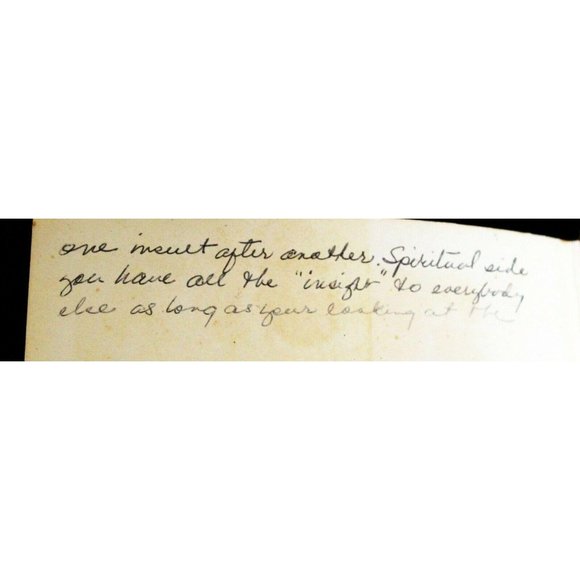 one insult after another. Spiritual side
you have all the "insight" to everybody
else as long as your looking at the